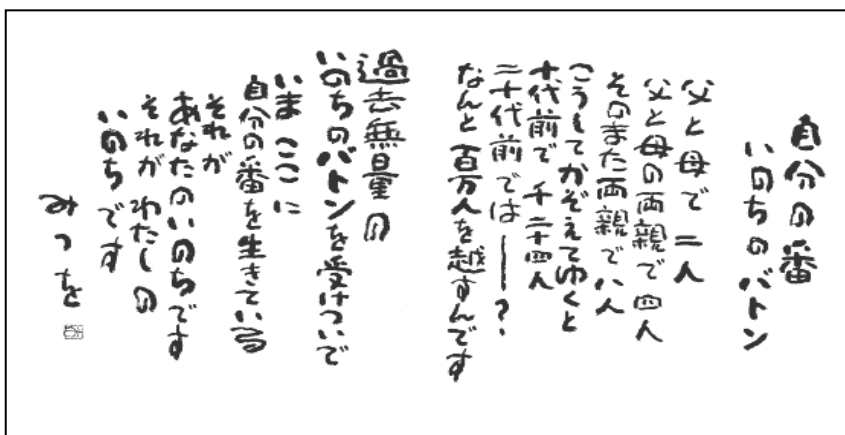 自分の番
いのちのバトン
父と母で二人
父と母の両親で四人
そのまた両親で八人
こうしてかぞえてゆくと
十代前で千二十四人
二十代前では―？
なんと百万人を越すんです
過去無量の
いのちのバトンを受けついで
いまここに
自分の番を生きている
それが
あなたのいのちです
それがわたしの
いのちです
みつを